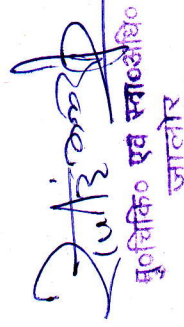 मु०चिकि० एवं स्वा०अधि०
जालोर